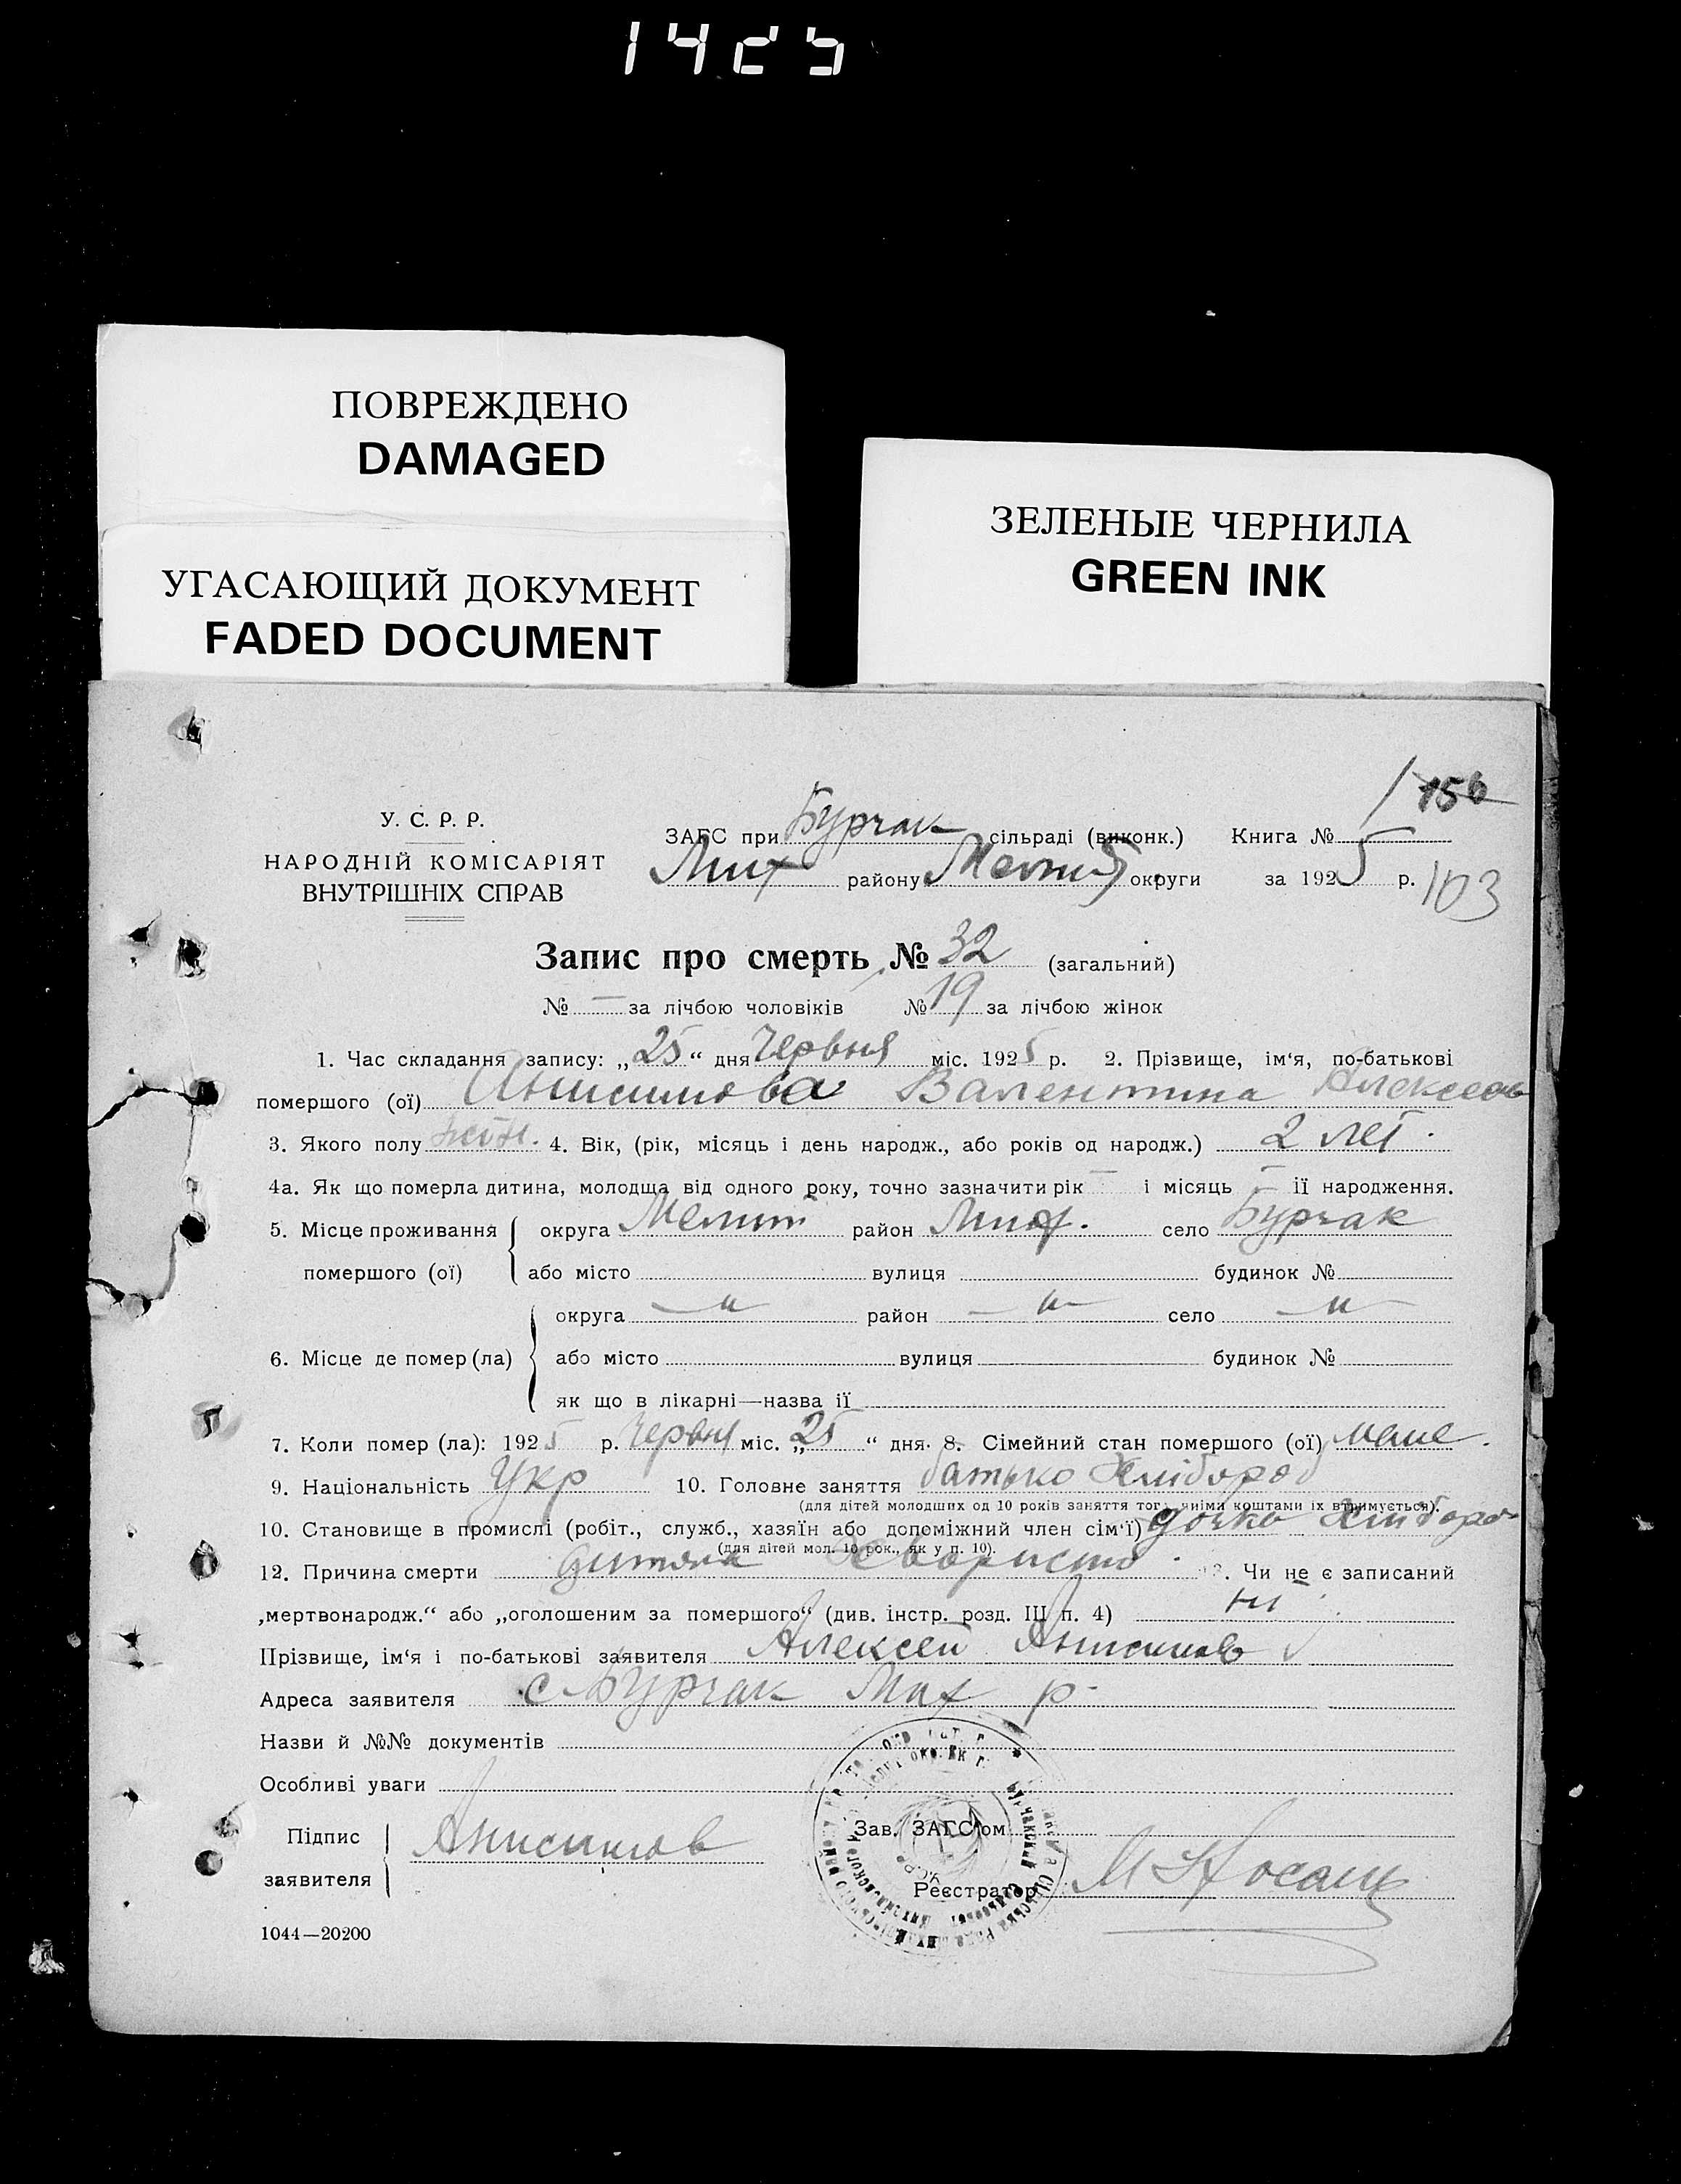 1425
ПОВРЕЖДЕНО
DAMAGED
УГАСАЮЩИЙ ДОКУМЕНТ
FADED DOCUMENT
ЗЕЛЕНЫЕ ЧЕРНИЛА
GREEN INK
156
У. С. Р. Р.
НАРОДНІЙ КОМІСАРІЯТ
ВНУТРІШНІХ СПРАВ
ЗАГС при Бурчак сільраді (виконк.) Книга №
Мих району Мелит округи за 1925 р.
103
Запис про смерть № 32 (загальний)
№ — за лічбою чоловіків № 19 за лічбою жінок
1. Час складання запису: „25“ дня Червня міс. 1925 р. 2. Прізвище, ім‘я, по-батькові
помершого (ої) Анисимова Валентина Алексеев
3. Якого полу жін. 4. Вік, (рік, місяць і день народж., або років од народж.) 2 лет.
4а. Як що померла дитина, молодща від одного року, точно зазначити рік — і місяць — ії народження.
5. Місце проживання округа Мелит район Мих. село Бурчак
помершого (ої) або місто вулиця будинок №
округа —"— район —"— село —"—
6. Місце де помер (ла) або місто вулиця будинок №
як що в лікарні—назва ії
7. Коли помер (ла): 1925 р. Червня міс. „25“ дня. 8. Сімейний стан помершого (ої) мале.
9. Національність Укр 10. Головне заняття батько Хлібороб
(для дітей молодших од 10 років заняття того, чиїми коштами їх втримується).
10. Становище в промислі (робіт., служб., хазяїн або допоміжний член сім‘ї) дочка Хлібороб
(для дітей мол. 10 рок., як у п. 10).
12. Причина смерти дитяча 13. Чи не є записаний
„мертвонародж.“ або „оголошеним за помершого“ (див. інстр. розд. III п. 4) ні
Прізвище, ім‘я і по-батькові заявителя Алексей Анисимов
Адреса заявителя с. Бурчак Мих р.
Назви й №№ документів
Особливі уваги
Підпис заявителя Анисимов
Зав. ЗАГС‘ом
Реєстратор
1044—20200